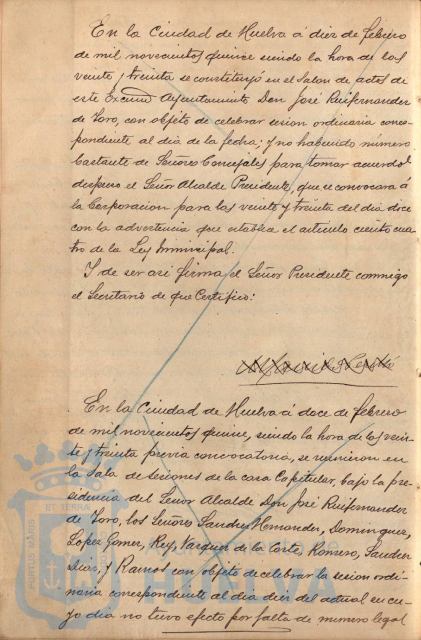 En la Ciudad de Huelva á diez de febrero
de mil novecientos quince siendo la hora de las
veinte y treinta se constituyó en el Salon de actos de
este Excmo Ayuntamiento Don José Ruifernandez
de Toro, con objeto de celebrar sesion ordinaria corres-
pondiente al dia de la fecha; y no habiendo número
bastante de Señores Concejales para tomar acuerdo
dispuso el Señor Alcalde Presidente, que se convocara á
la Corporacion para las veinte y treinta del dia doce
con la advertencia que establece el artículo ciento cua-
tro de la Ley Municipal.
Y de ser asi firma el Señor Presidente conmigo
el Secretario de que Certifico:
En la Ciudad de Huelva á doce de febrero
de mil novecientos quince, siendo la hora de las vein-
te y treinta previa convocatoria, se reunieron en
la Sala de sesiones de la casa Capitular, bajo la pre-
sidencia del Señor Alcalde Don José Ruifernandez
de Toro, los Señores Sanchez Hernandez, Dominguez,
Lopez Gomez, Rey, Vazquez de la Corte, Romero, Sanchez
Diaz, y Ramos con objeto de celebrar la sesion ordi-
naria correspondiente al dia diez del actual en cu-
yo dia no tuvo efecto por falta de numero legal
PORTUS MARIS
ET TERRÆ